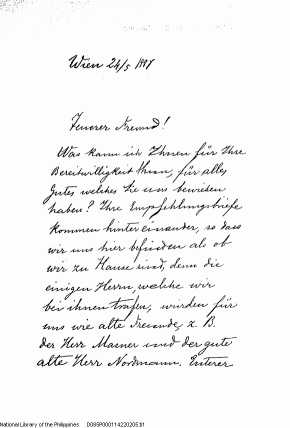 Wien 24/5 1887
Teuerer Freund!
Was kann ich Ihnen für Ihre
Bereitwilligkeit thun, für alles
Gutes welches Sie uns bewiesen
haben? Ihre Empfehlungsbriefe
kommen hintereinander, so dass
wir uns hier befinden als ob
wir zu Hause sind, denn die
einigen Herrn, welche wir
bei ihnen trafen, wurden für
uns wie alte Freunde, z. B.
der Herr und der gute
alte Herr Nordmann. Ersterer
National Library of the Philippines